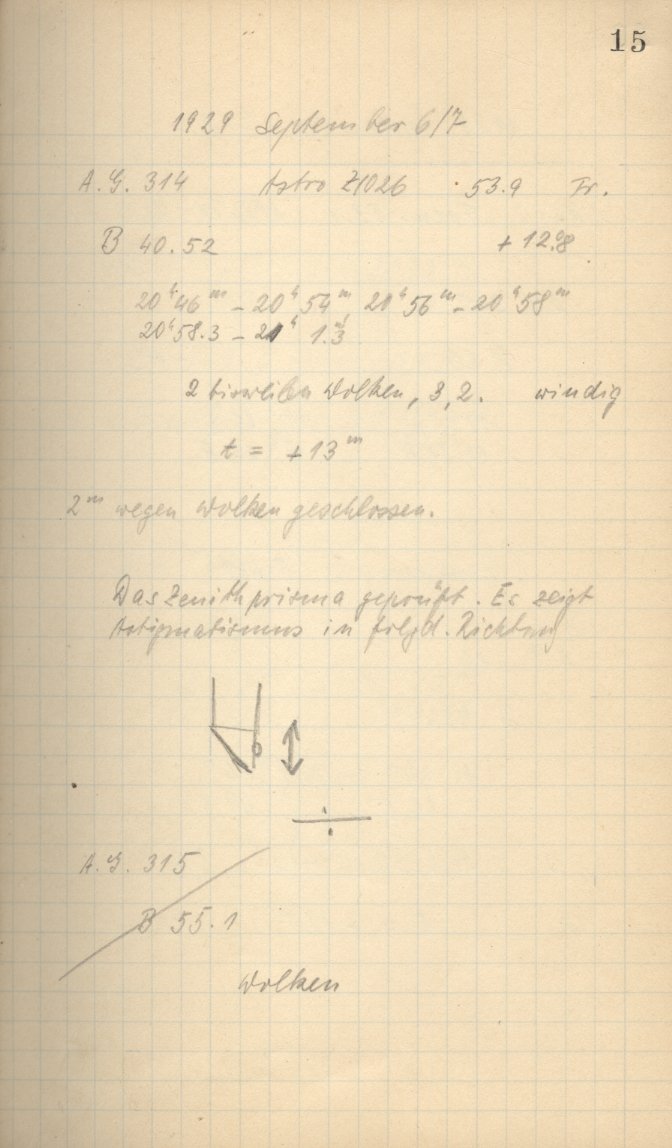 15
1929 September 6/7
A.G. 314 Astro Z1026 53.9 Fr.
B 40.52 +12.°8
20ʰ46ᵐ – 20ʰ54ᵐ 20ʰ56ᵐ – 20ʰ58ᵐ
20ʰ58.3 – 21ʰ 1.ᵐ3
2 bisweilen Wolken, 3, 2. windig
t = +13ᵐ
2ᵐ wegen Wolken geschlossen.
Das Zenithprisma geprüft. Es zeigt
Astigmatismus in folgd. Richtung
A.G. 315
B 55.1
Wolken